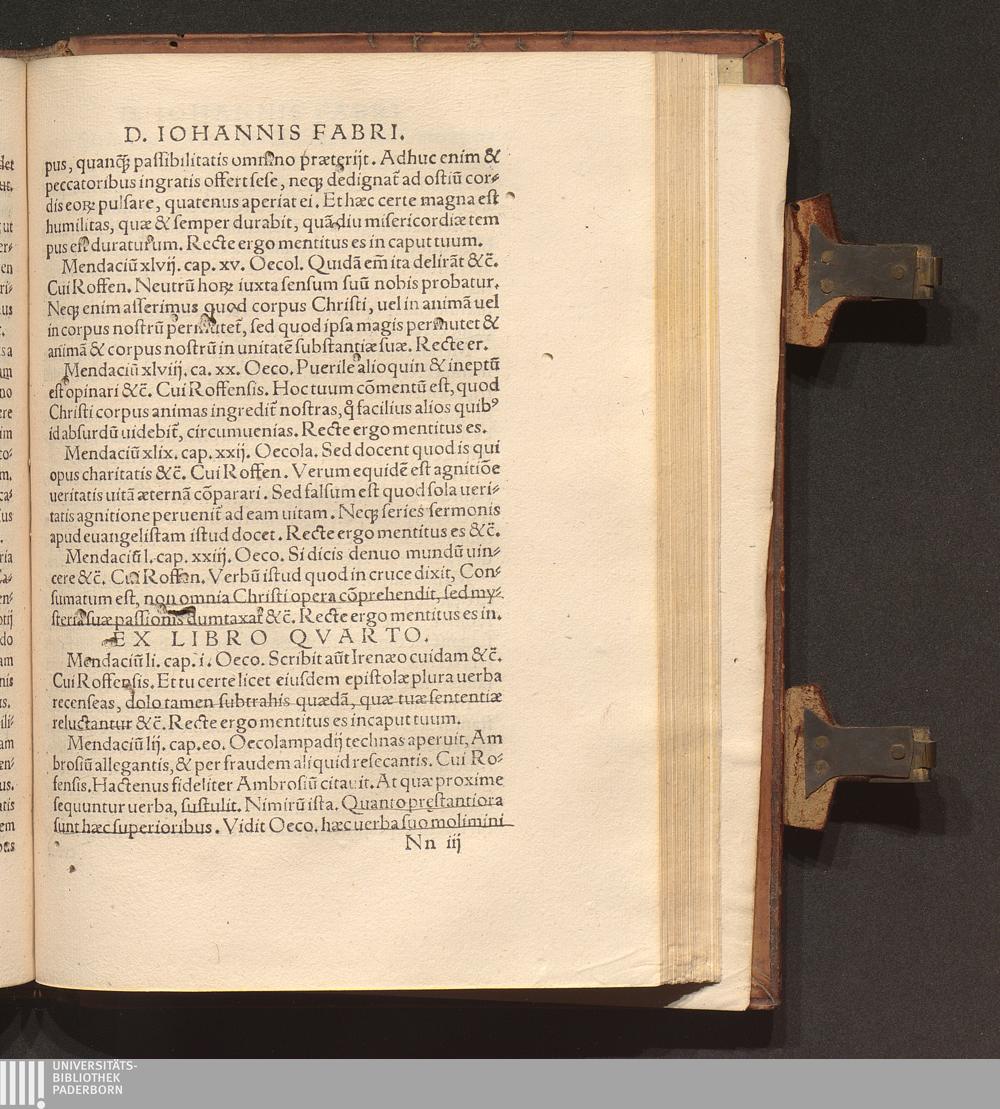 D. IOHANNIS FABRI.
pus, quanqꝫ passibilitatis omnino præterijt. Adhuc enim &
peccatoribus ingratis offert sese, neqꝫ dedignat̃ ad ostiũ cor⸗
dis eoꝝ pulsare, quatenus aperiat ei. Et hæc certe magna est
humilitas, quæ & semper durabit, quãdiu misericordiæ tem
pus est duraturum. Recte ergo mentitus es in caput tuum.
Mendaciũ xlvij. cap. xv. Oecol. Quidã em̃ ita delirãt &c̃.
Cui Roffen. Neutrũ hoꝝ iuxta sensum suũ nobis probatur.
Neqꝫ enim asserimus quod corpus Christi, uel in animã uel
in corpus nostrũ permutet̃, sed quod ipsa magis permutet &
animã & corpus nostrũ in unitatẽ substantiæ suæ. Recte er.
Mendaciũ xlviij. ca. xx. Oeco. Puerile alioquin & ineptũ
est opinari &c̃. Cui Roffensis. Hoc tuum cõmentũ est, quod
Christi corpus animas ingredit̃ nostras, q̃ facilius alios quibꝰ
id absurdũ uidebit̃, circumuenias. Recte ergo mentitus es.
Mendaciũ xlix. cap. xxij. Oecola. Sed docent quod is qui
opus charitatis &c̃. Cui Roffen. Verum equidẽ est agnitiõe
ueritatis uitã æternã cõparari. Sed falsum est quod sola ueri⸗
tatis agnitione peruenit̃ ad eam uitam. Neqꝫ series sermonis
apud euangelistam istud docet. Recte ergo mentitus es &c̃.
Mendaciũ l. cap. xxiij. Oeco. Si dicis denuo mundũ uin⸗
cere &c̃. Cui Roffen. Verbũ istud quod in cruce dixit, Con⸗
sumatum est, non omnia Christi opera cõprehendit, sed my⸗
steria suæ passionis dumtaxat &c̃. Recte ergo mentitus es in.
EX LIBRO QVARTO.
Mendaciũ li. cap. i. Oeco. Scribit aũt Irenæo cuidam &c̃.
Cui Roffensis. Et tu certe licet eiusdem epistolæ plura uerba
recenseas, dolo tamen subtrahis quædã, quæ tuæ sententiæ
reluctantur &c̃. Recte ergo mentitus es in caput tuum.
Mendaciũ lij. cap. eo. Oecolampadij technas aperuit, Am
brosiũ allegantis, & per fraudem aliquid resecantis. Cui Ro⸗
fensis. Hactenus fideliter Ambrosiũ citauit. At quæ proxime
sequuntur uerba, sustulit. Nimirũ ista. Quanto pręstantiora
sunt hæc superioribus. Vidit Oeco. hæc uerba suo molimini
Nn iij
UNIVERSITÄTS-
BIBLIOTHEK
PADERBORN